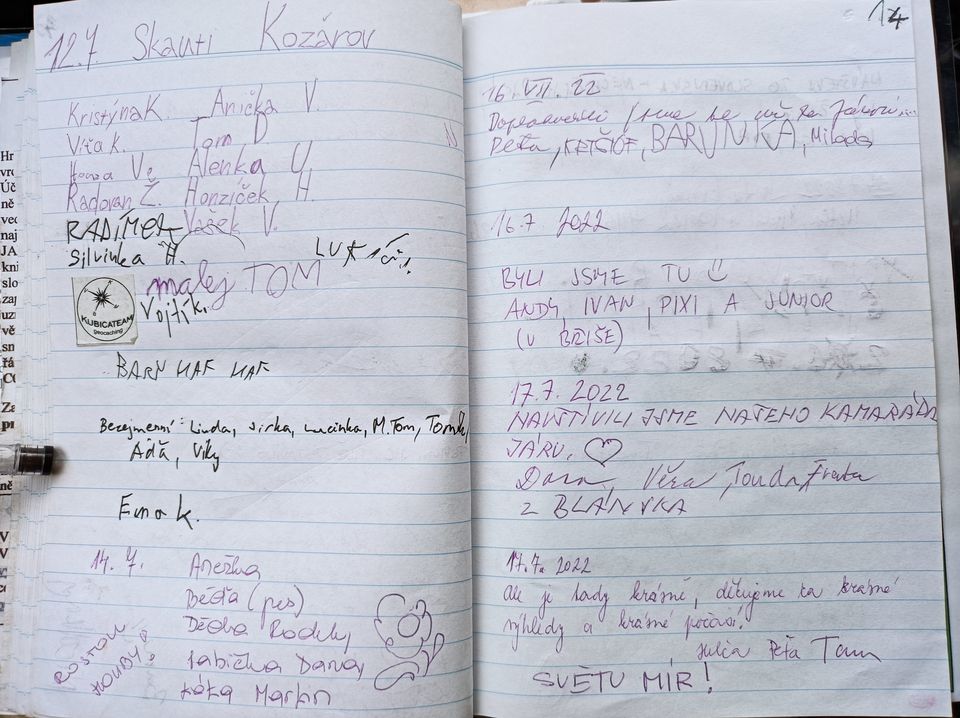 12.7 Skauti Kozárov
Kristýna K. Anička V.
Víťa K. Tom D.
Honza V. Alenka U
Radovan Ž. Honzíček H.
RADIMEK Vašek V.
Silvinka H.
malej TOM
KUBICATEAM
geocaching
Vojtík.
BARY HAF HAF
Bezejmenní: Linda, Jirka, Lucinka, M.Tom,
Áďa, Viky
Ema K.
14.7. Anežka
Béďa (pes)
Děda Radek
babička Dana
Martin
14
16. VII. 22
jsme se
Péťa, KRYŠTOF, BARUNKA, Milada
16.7 2022
BYLI JSME TU
ANDY, IVAN, PIXI A JÚNIOR
(V BŘIŠE)
17.7. 2022
NAVŠTÍVILI JSME NAŠEHO KAMARÁDA
JÁRU,
Dana, Věra, Tonda, Frata
Z BLANSKA
17.7. 2022
Ale je tady krásně, děkujeme za krásné
výhledy a krásné počasí!
Julča Péťa Tom
SVĚTU MÍR!